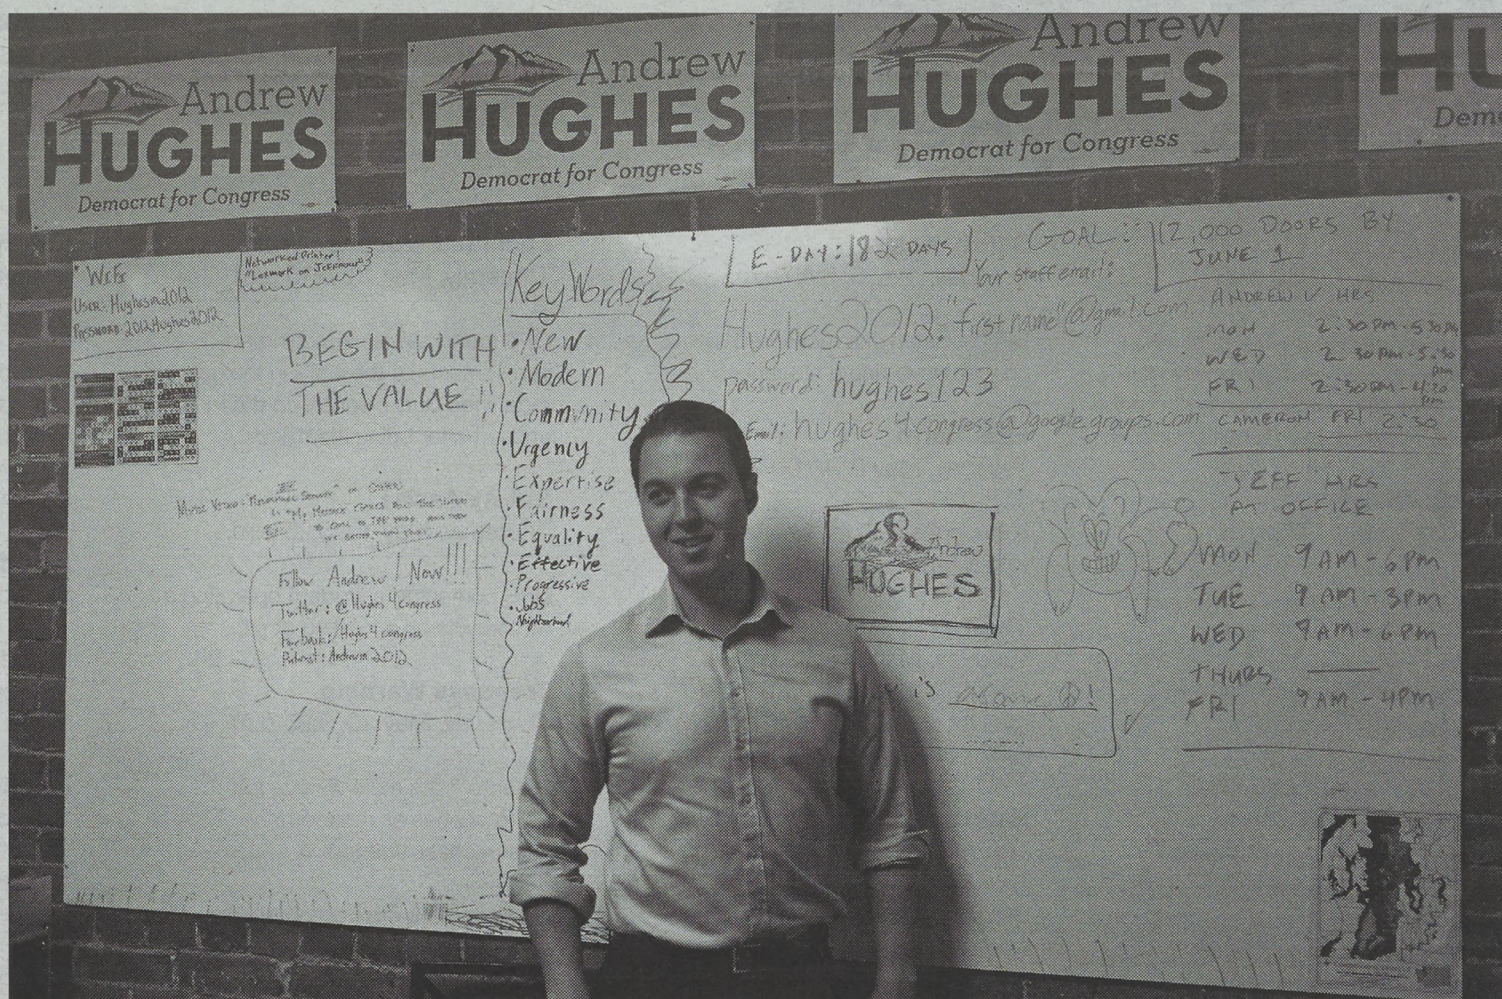 Andrew
HUGHES
Democrat for Congress
Andrew
HUGHES
Democrat for Congress
Andrew
HUGHES
Democrat for Congress
HU
Dem
WiFi
User: Hughes2012
Password: 2012Hughes2012
Networked Printer!
"Lexmark on Jefferson"
BEGIN WITH
THE VALUE!!
Follow Andrew! Now!!!
Twitter: @Hughes4congress
Facebook: /Hughes4congress
Pinterest: Andrew2012
Key Words
• New
• Modern
• Community
• Urgency
• Expertise
• Fairness
• Equality
• Effective
• Progressive
• Jobs
• Neighborhood
E-DAY: 182 DAYS
GOAL: 12,000 DOORS BY
JUNE 1
Your staff email:
Hughes2012."first name"@gmail.com
password: hughes123
Email: hughes4congress@googlegroups.com
ANDREW V HRS
MON 2:30PM-5:30PM
WED 2:30PM-5:30PM
FRI 2:30PM-4:20PM
CAMERON FRI 2:30
Andrew
HUGHES
is
JEFF HRS
AT OFFICE
MON 9AM-6PM
TUE 9AM-3PM
WED 9AM-6PM
THURS ——
FRI 9AM-4PM